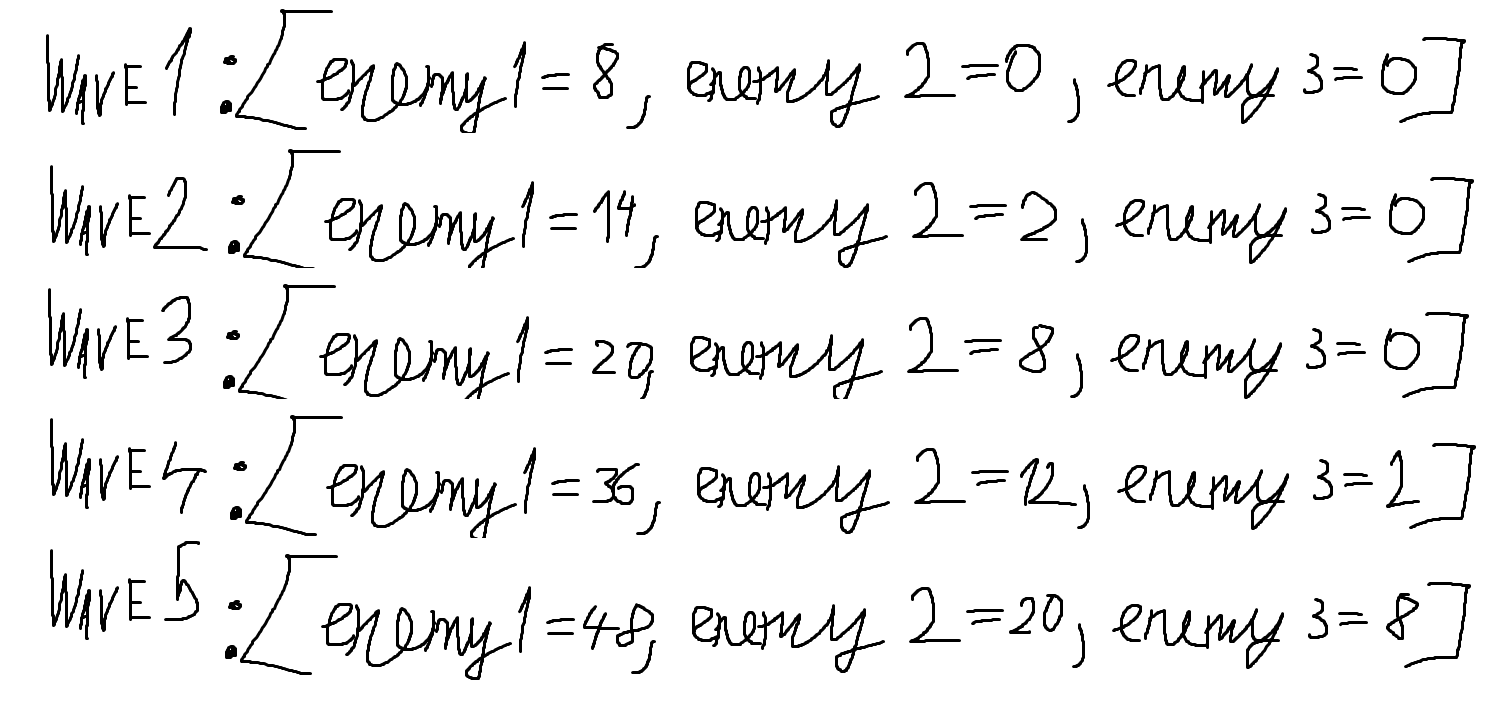 WAVE 1:[enemy1=8, enemy 2=0, enemy 3=0]
WAVE 2:[enemy1=14, enemy 2=2, enemy 3=0]
WAVE 3:[enemy1=20, enemy 2=8, enemy 3=0]
WAVE 4:[enemy1=36, enemy 2=12, enemy 3=2]
WAVE 5:[enemy1=48, enemy 2=20, enemy 3=8]